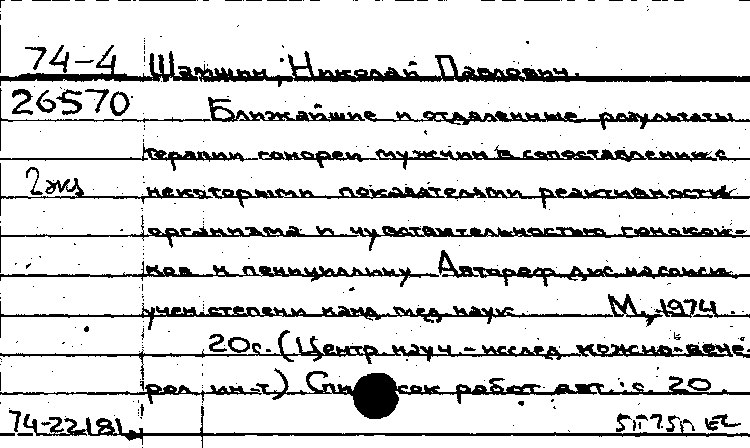 74-4 Шамшин, Николай Павлович.
26570 Ближайшие и отдаленные результаты
терапии гонореи мужчин в сопоставлении с
2 экз некоторыми показателями реактивности
организма и чувствительностью гонокок-
ков к пенициллину Автореф дис на соиск
учен. степени канд мед наук М., 1974.
20с. (Центр. науч-исслед кожно-вене
рол ин-т) Список работ авт.: с. 20.
74-22181